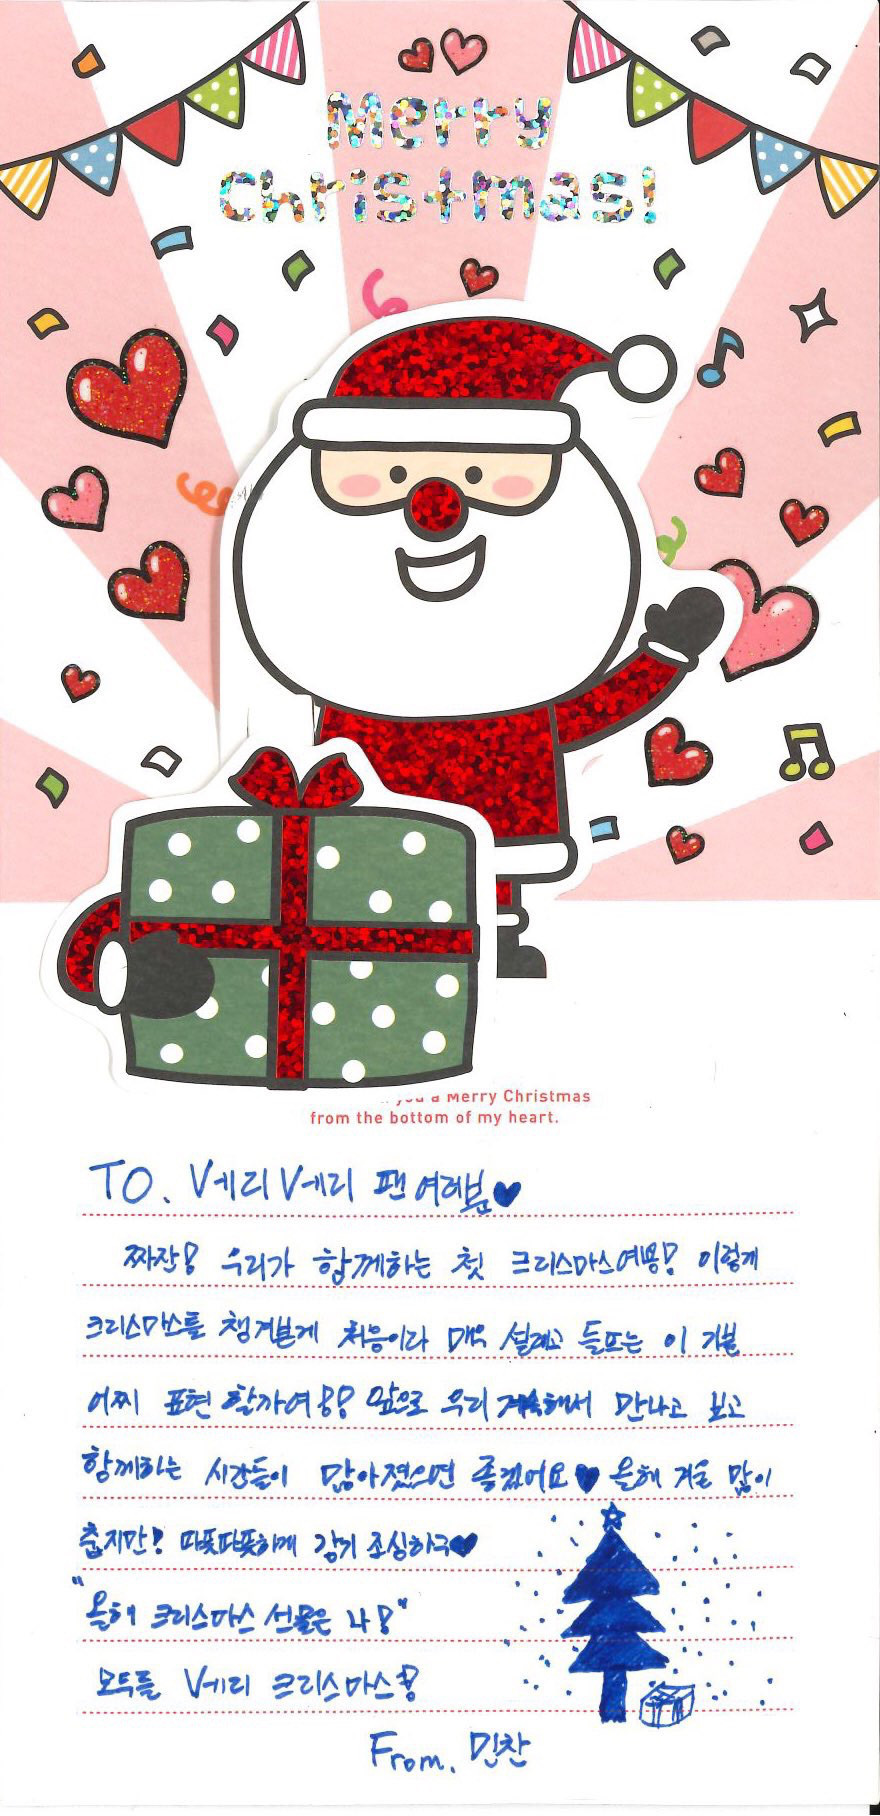 Merry
Christmas!
you a Merry Christmas
from the bottom of my heart.
TO. Vㅔ리Vㅔ리 팬 여러분♥
짜잔! 우리가 함께하는 첫 크리스마스예용! 이렇게
크리스마스를 챙겨본게 처음이라 매우 설레고 들뜨는 이 기분
어찌 표현 할까여용! 앞으로 우리 계속해서 만나고 보고
함께하는 시간들이 많아졌으면 좋겠어요♥ 올해 겨울 많이
춥지만! 따뜻따뜻하게 감기 조심하구♥
"올해 크리스마스 선물은 나!"
모두들 Vㅔ리 크리스마스!
From. 민찬